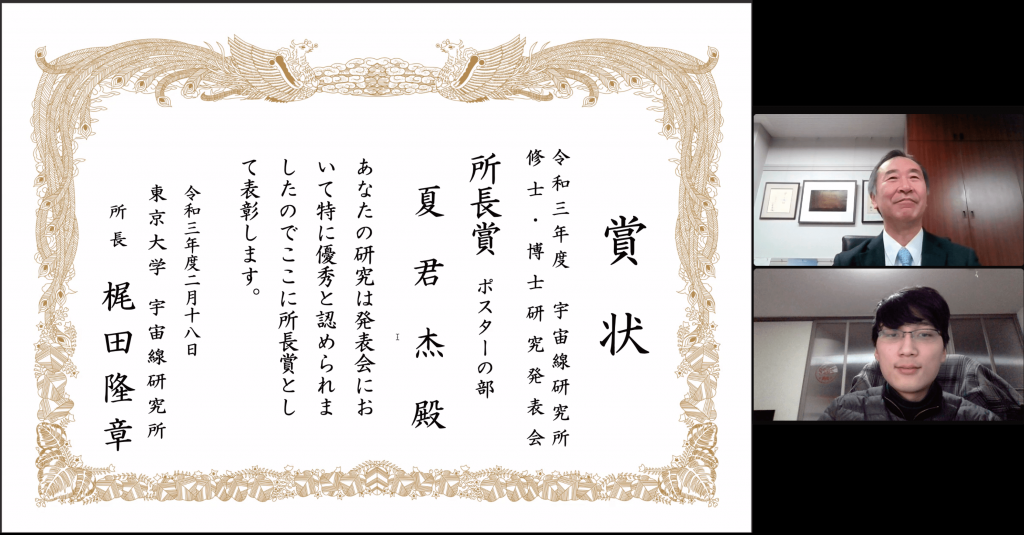 賞状
令和三年度 宇宙線研究所
修士・博士研究発表会
所長賞 ポスターの部
夏君杰殿
あなたの研究は発表会にお
いて特に優秀と認められま
したのでここに所長賞とし
て表彰します。
令和三年度二月十八日
東京大学 宇宙線研究所
所長 梶田隆章